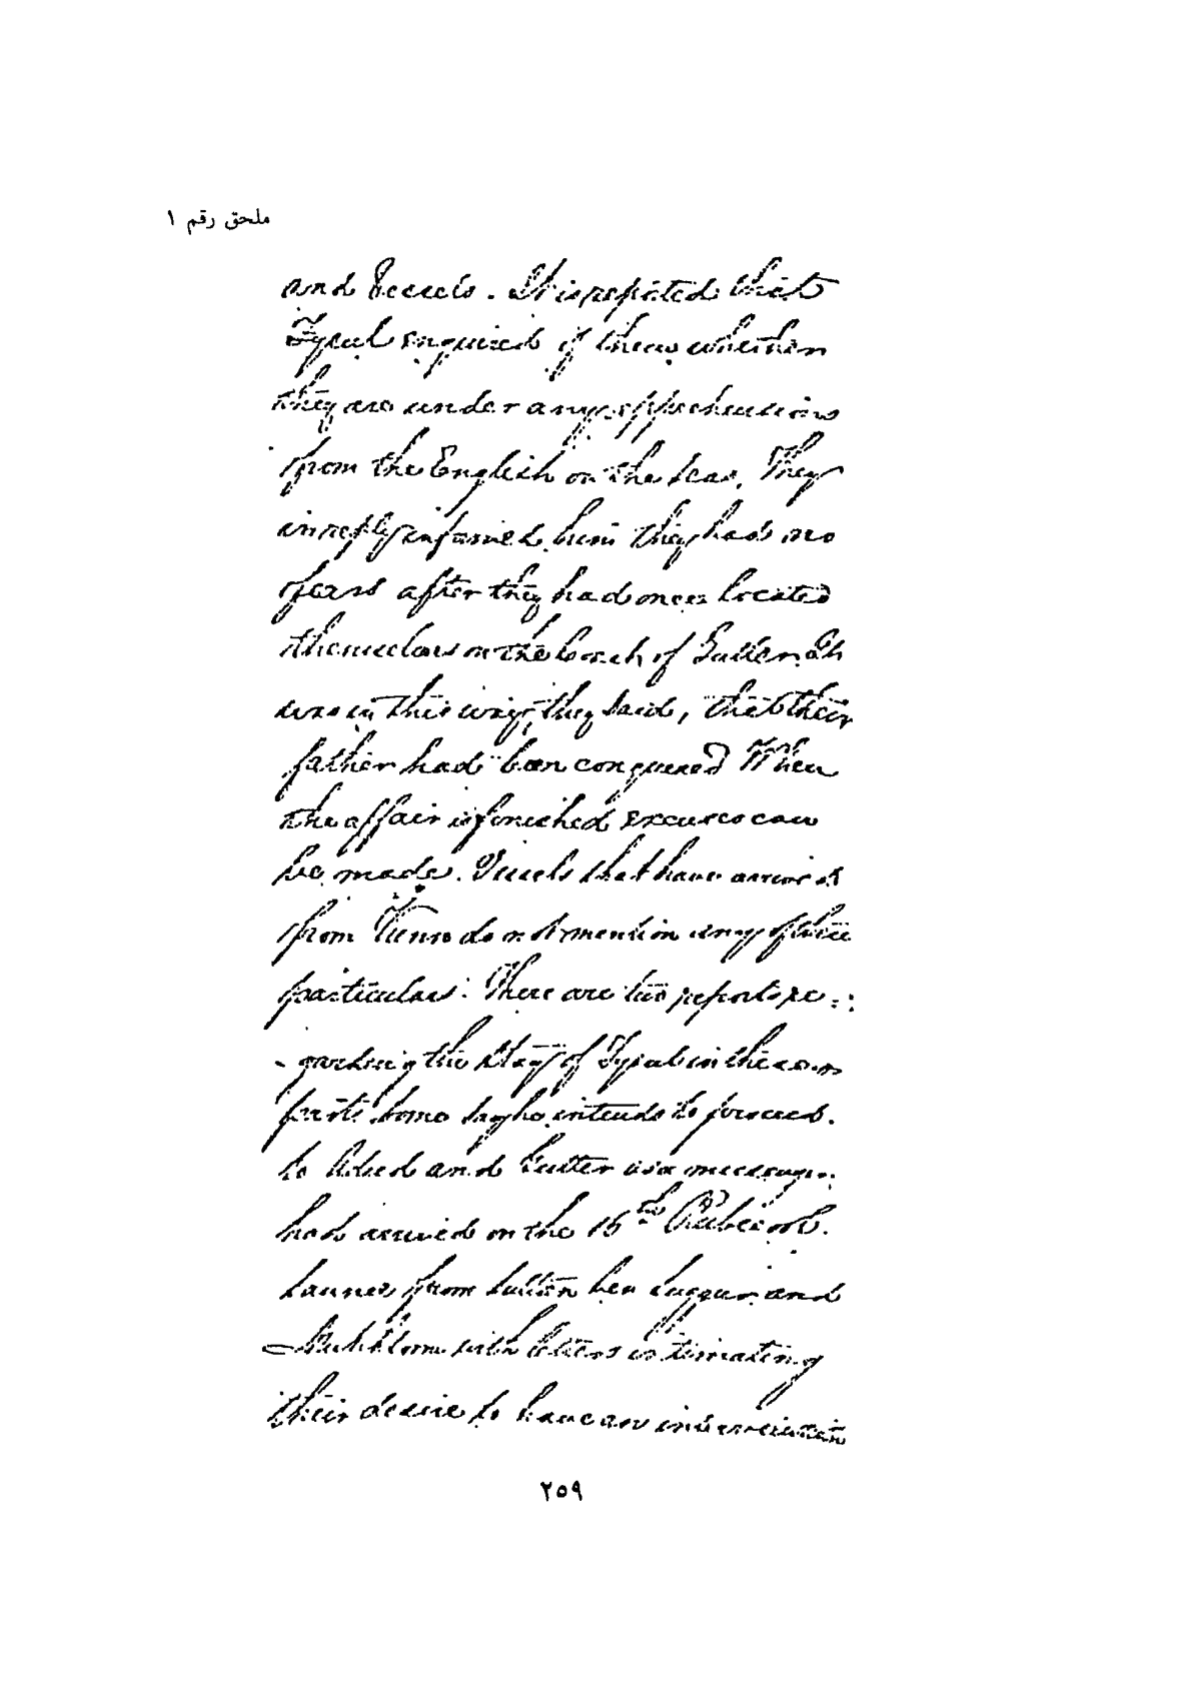 ملحق رقم ١
and Vessels. It is reported that
Fysul enquired of them whether
they are under any apprehensions
from the English on the Seas. They
in reply informed him they had no
fears after they had once located
themselves on the beach of
was in this way, they said, that their
father had been conquered When
the affair is finished excuses can
be made. Vessels that have arrived
from do not mention any of these
particulars. There are two reports re=
-garding the stay of Fysul in these
parts some say he intends to proceed
to and as a messenger
had arrived on the 16th
from Sultan ben Suggur and
Mukhtoom with letters intimating
their desire to have an interview
٢٥٩